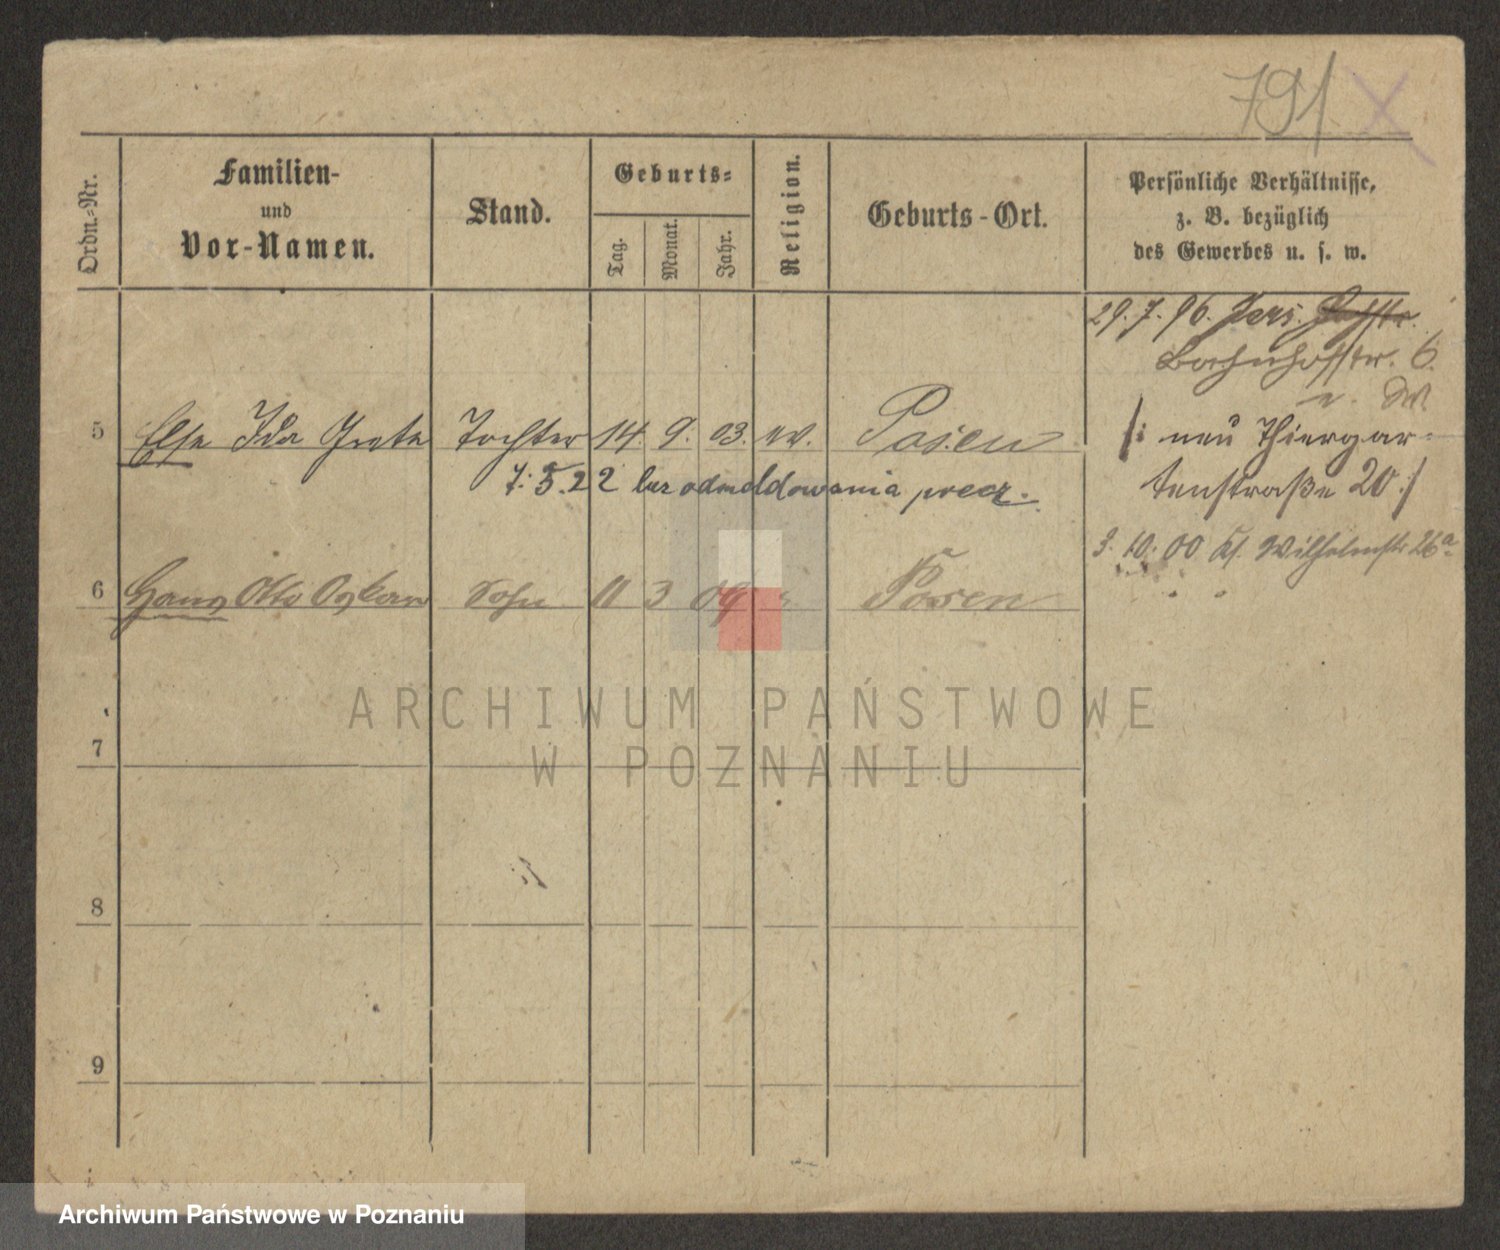 791 X
Ordn.-Nr.
Familien-
und
Vor-Namen.
Stand.
Geburts-
Tag.
Monat.
Jahr.
Religion.
Geburts-Ort.
Persönliche Verhältnisse,
z. B. bezüglich
des Gewerbes u. s. w.
29. 7. 96.
Bahnhofstr. 6.
5 Else Ida Grete Tochter 14 9. 03. ev. Posen
/: neu Thiergar-
tenstraße 20 :/
7. 5. 22 bez odmeldowania
3. 10. 00 Wilhelmstr 26a
6 Hans Otto Oskar Sohn 11 3 09 " Posen
ARCHIWUM PAŃSTWOWE
W POZNANIU
7
8
9
Archiwum Państwowe w Poznaniu